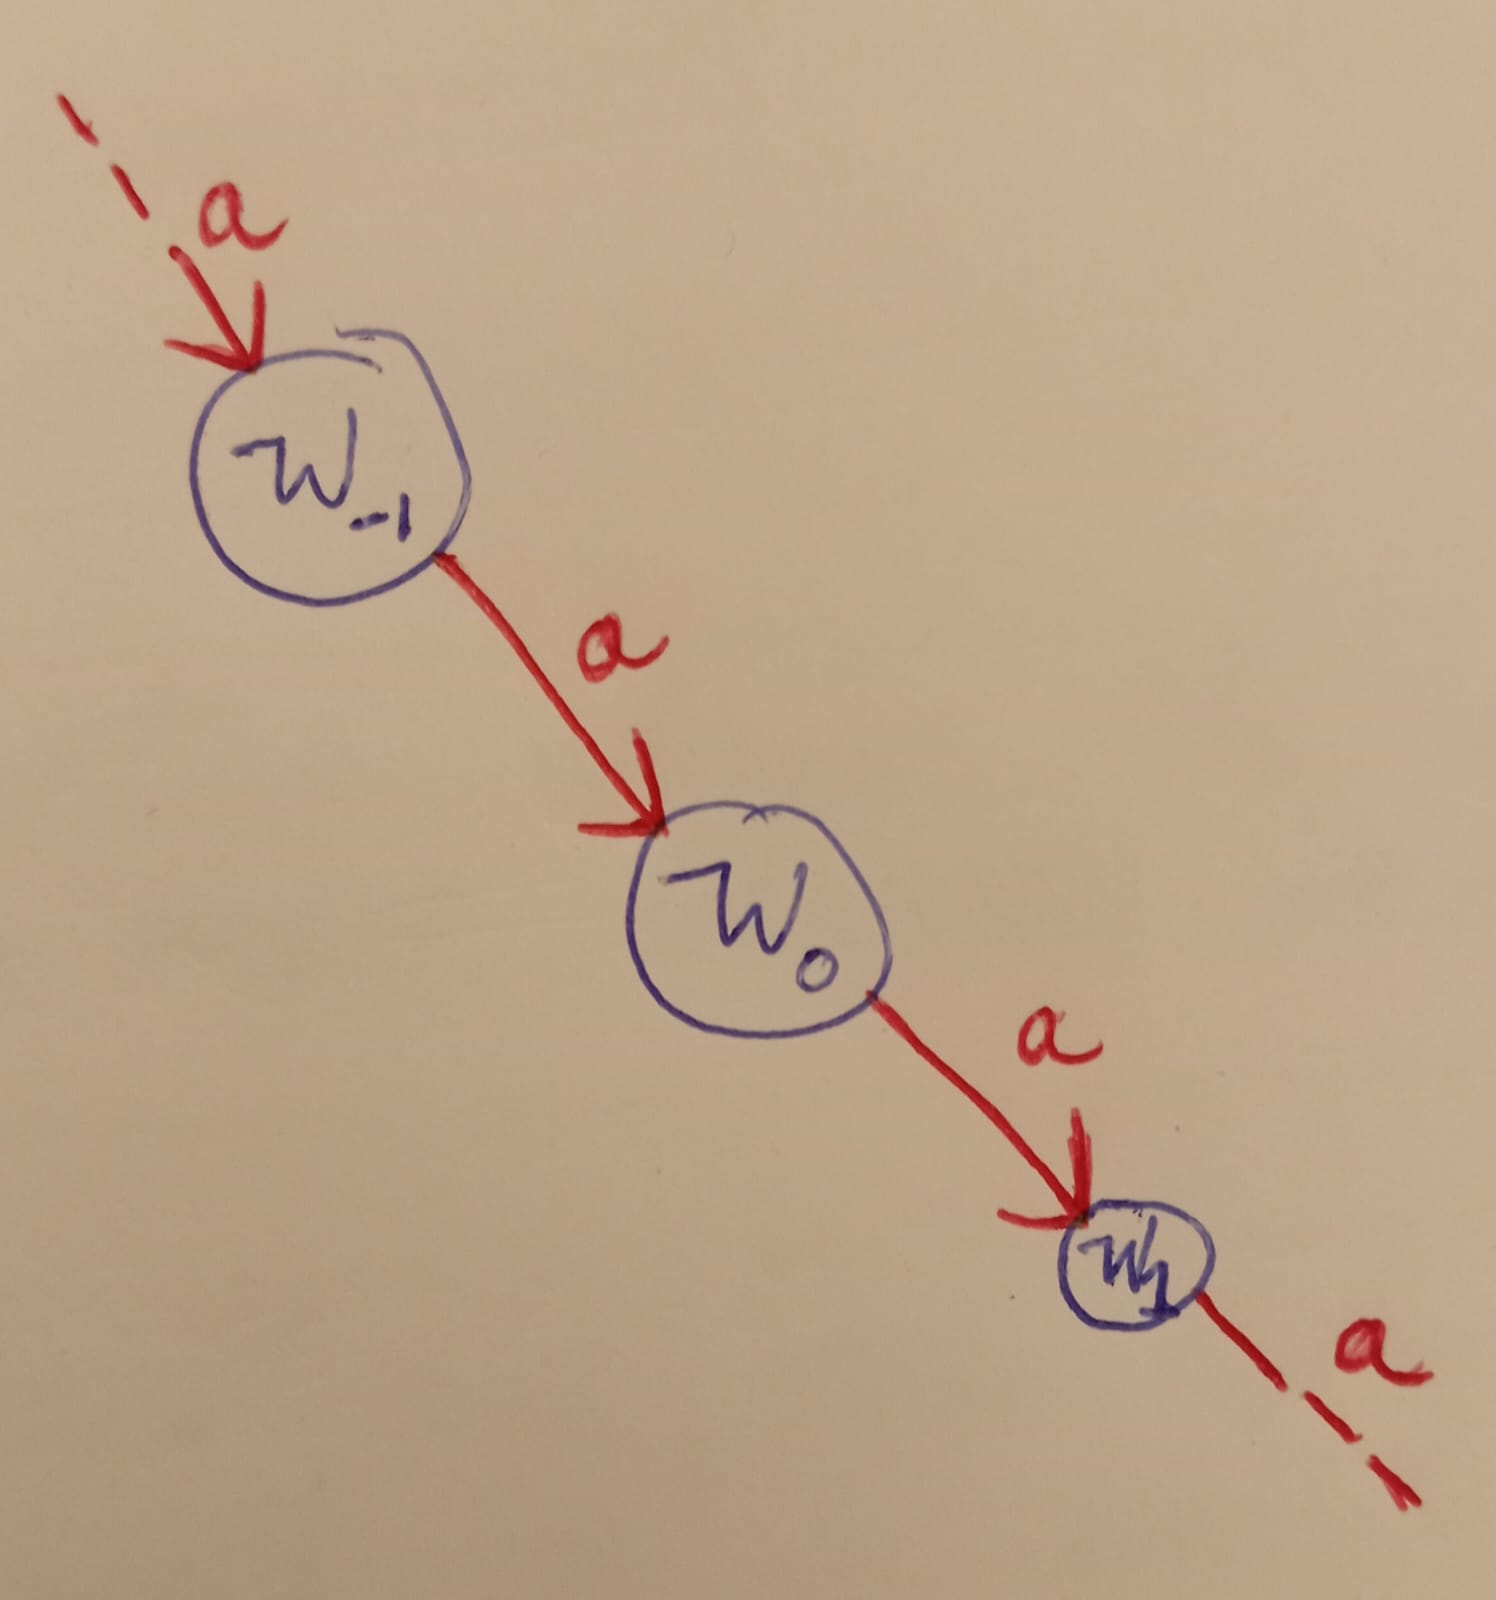 a
W₋₁
a
W₀
a
W₁
a